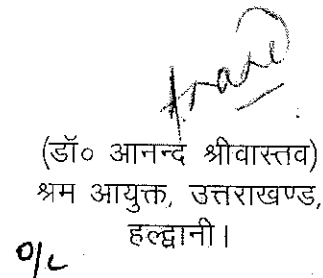 (डॉ० आनन्द श्रीवास्तव)
श्रम आयुक्त, उत्तराखण्ड,
हल्द्वानी।
O/C